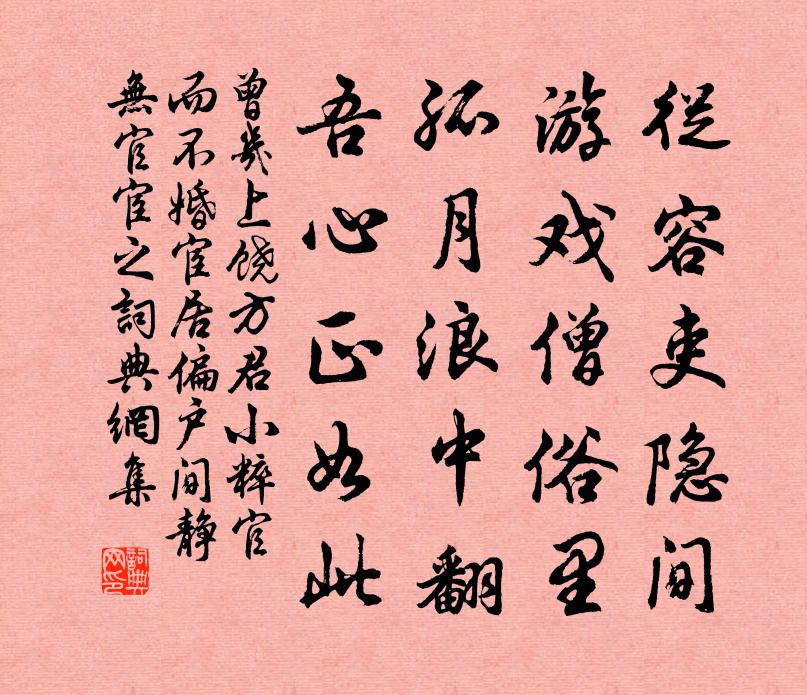 從容吏隐间
游戏僧俗里
孤月浪中翻
吾心正如此
曾幾上饶方君小粹官
而不婚宦居偏户间静
無官宦之詞典網集
詞典
网印